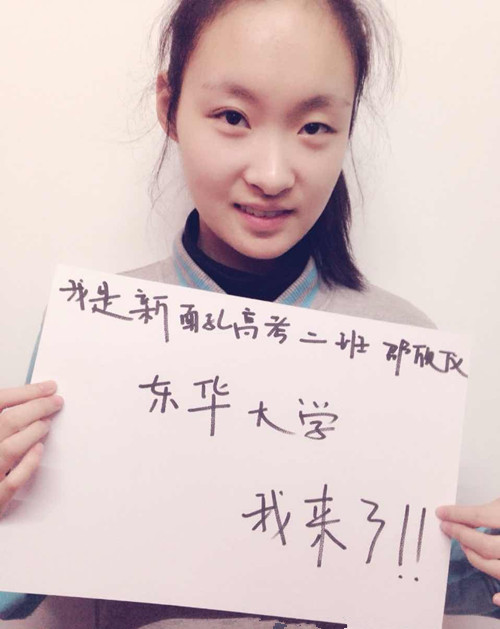 我是新面孔高考二班 邵欣
东华大学
我来了!!